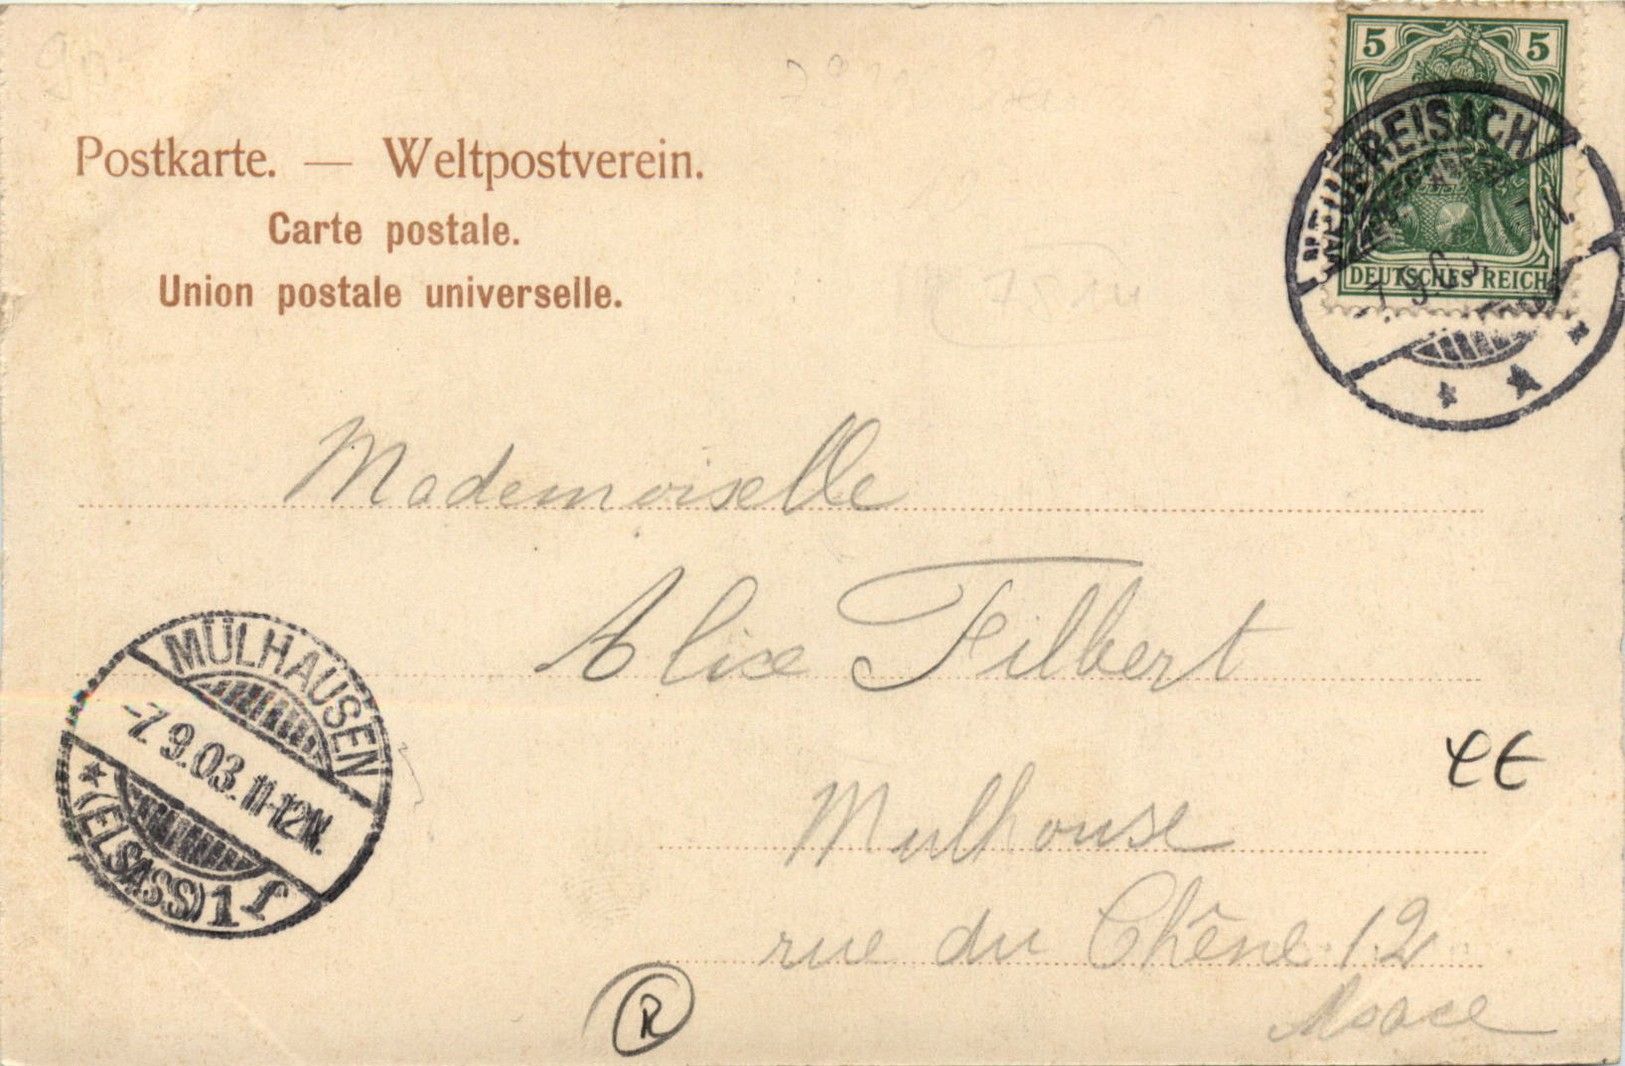 Postkarte. — Weltpostverein.
Carte postale.
Union postale universelle.
5 5
DEUTSCHES REICH
NEUBREISACH
7.9.03
Mademoiselle
Alice Filbert
Mulhouse
rue du Chêne 12
Alsace
MÜLHAUSEN
-7.9.03.11-12N.
*(ELSASS) 1 f
R